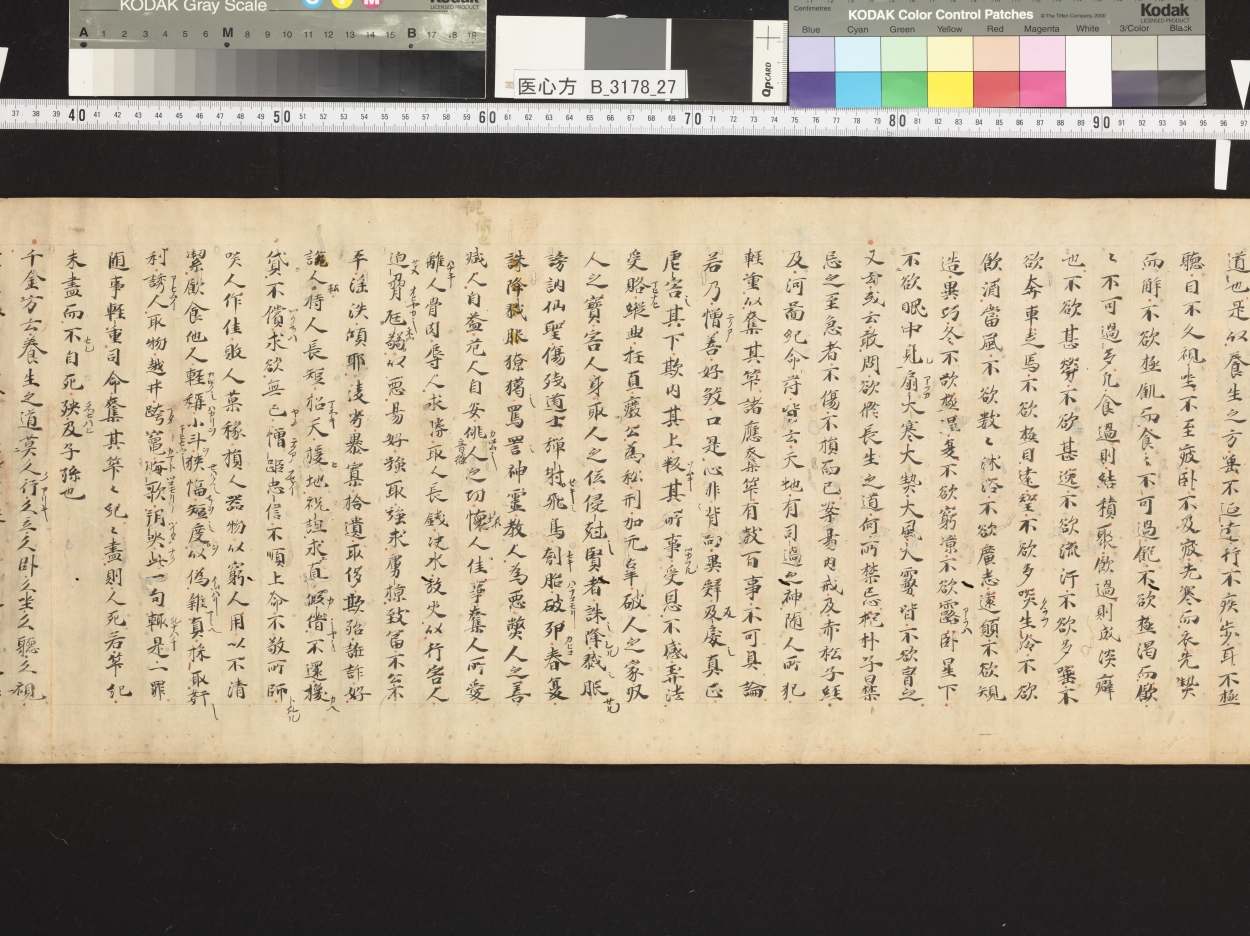 KODAK Gray Scale
Kodak
LICENSED PRODUCT
KODAK Color Control Patches
© The Tiffen Company, 2000
Kodak
LICENSED PRODUCT
Centimetres
Blue Cyan Green Yellow Red Magenta White 3/Color Black
A 1 2 3 4 5 6 M 8 9 10 11 12 13 14 15 B 17 18 19
医心方 B_3178_27
QPCARD
40 50 60 70 80 90
道也是以養生之方唾不延遠行不疾步耳不極
聽目不久視坐不至疲臥不及疲先寒而衣先熱
而解不欲極飢而食々不可過飽不欲極渴而飲
々不可過多凡食過則結積聚飲過則成淡癖
也不欲甚勞不欲甚逸不欲流汗不欲多唾不
欲奔車走馬不欲極目遠望不欲多啖生冷不欲
飲酒當風不欲數々沐浴不欲廣志遠願不欲規
造異巧冬不欲極温夏不欲窮涼不欲露臥星下
不欲眠中見扇大寒大熱大風大霧皆不欲冒之
又云或云敢問欲修長生之道何所禁忌抱朴子曰禁
忌之至急者不傷不損而已案易內戒及赤松子經
及河啚紀命符皆云天地有司過之神隨人所犯
輕重以奪其筭諸應奪筭有數百事不可具論
若乃憎善好煞口是心非背向異辭反戾真正
虐害其下欺罔其上叛其所事受恩不感弄法
受賂縱曲枉直廢公為私刑加元辜破人之家収
人之寶害人身取人之位侵尅賢者誅降戮服
謗訕仙聖傷殘道士彈射飛鳥刳胎破卵春夏
誅降戮服獠獨罵詈神靈教人為惡弊人之善
減人自益危人自安佻人之功懷人佳事奪人所愛
離人骨肉辱人求勝取人長錢决水放火以行害人
迫脅尫弱以惡易好強取強求虜掠致富不公不
平淫泆傾耶淩孤暴寡拾遺取侈欺殆誑詐好
說人持人長短招天援地祝詛求直假借不還換
貸不償求欲無已憎距忠信不順上命不敬所師
咲人作佳敗人菓稼損人器物以窮人用以不清
潔飲食他人輕稱小斗狹幅短度以偽雜真採取姧
利誘人取物越井跨竃晦歌朔哭此一句輙是一罪
随事輕重司命奪其筭々紀々盡則人死若筭紀
未盡而不自死殃及子孫也
千金方云養生之道莫久行久立久臥久坐久聽久視